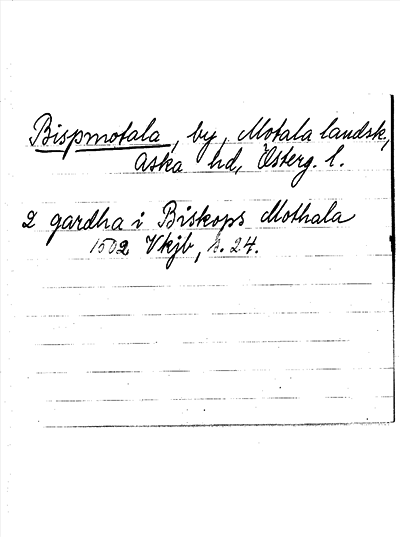 Bispmotala, by, Motala landsk,
Aska hd, Österg. l.
2 gardha i Biskops Mothala
1502 Vkjb, s. 24.